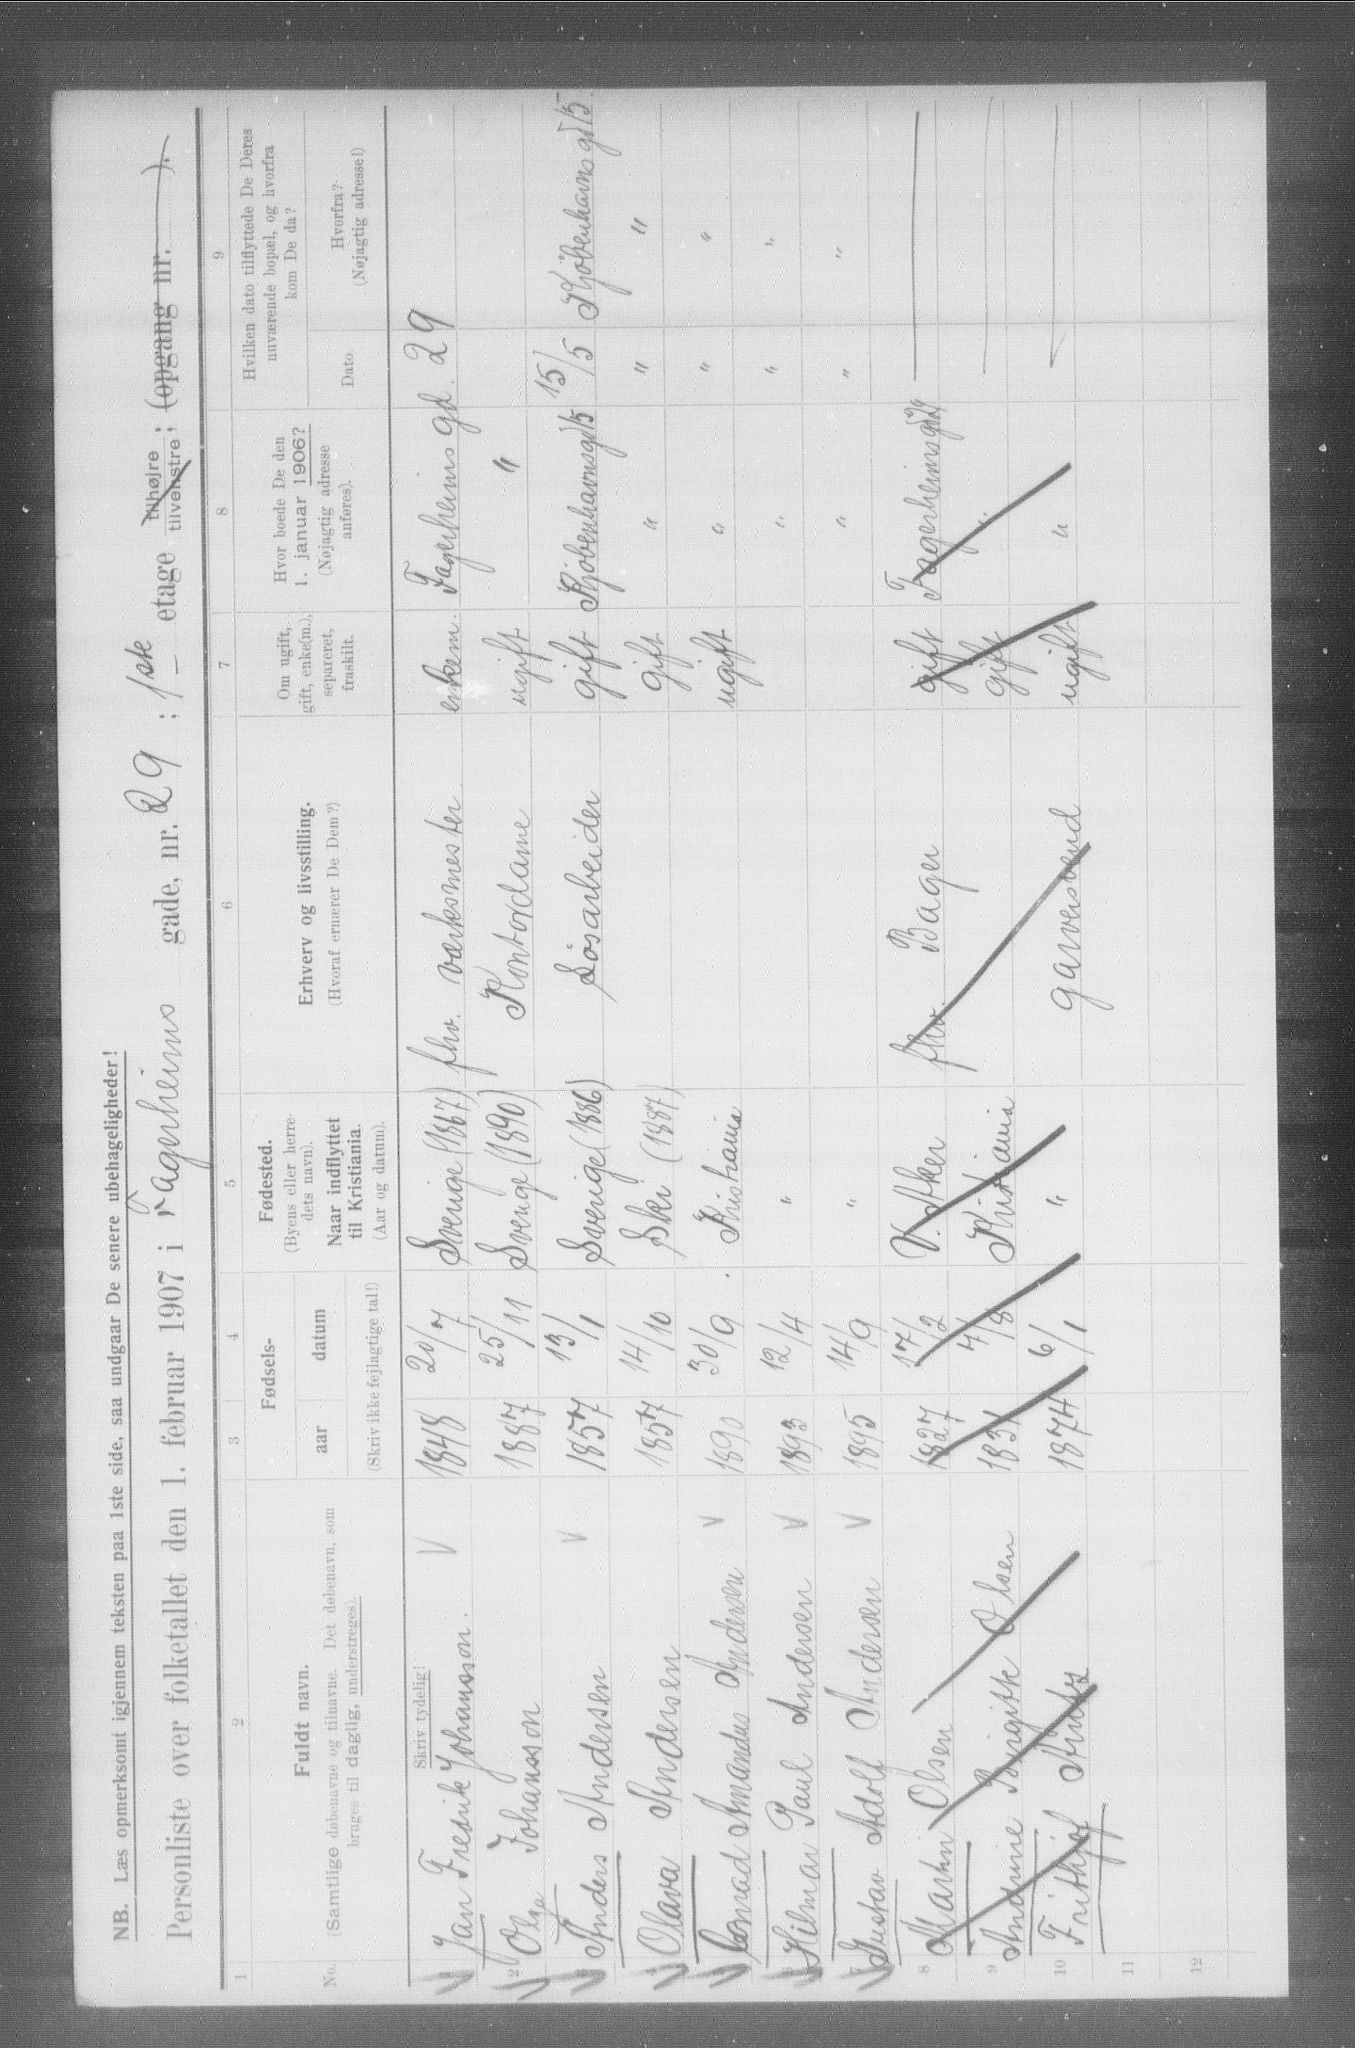 NB. Læs opmerksomt igjennem teksten paa 1ste side, saa undgaar De senere ubehageligheder!
Personliste over folketallet den 1. februar 1907 i Fagerheims gade, nr. 29 ; 1ste etage tilhøjre tilvenstre ; (opgang nr. ).
1 2 3 4 5 6 7 8 9
No.
Fuldt navn.
(Samtlige døbenavne og tilnavne. Det døbenavn, som
bruges til daglig, understreges).
Fødsels-
aar datum
Fødested.
(Byens eller herre-
dets navn).
Naar indflyttet
til Kristiania.
(Aar og datum).
Erhverv og livsstilling.
(Hvoraf ernærer De Dem?)
Om ugift,
gift, enke(m.),
separeret,
fraskilt.
Hvor boede De den
1. januar 1906?
(Nøjagtig adresse
anføres).
Hvilken dato tilflyttede De Deres
nuværende bopæl, og hvorfra
kom De da?
Dato.
Hvorfra?
(Nøjagtig adresse!)
Skriv tydelig!
(Skriv ikke fejlagtige tal!)
Jan Fredrik Johansson. V 1848 20/7 Sverige (1867) fhv. værksmester enkem. Fagerheims gd. 29
2 Olga Johansson 1887 25/11 Sverige (1890) Kontordame ugift "
Anders Andersen V 1857 13/1 Sverige (1886) Løsarbeider gift Kjøbenhavnsgd 15 15/5 Kjøbenhavns gd 15.
4 Olava Andersen 1857 14/10 Ski (1887) gift " " "
Conrad Amandus Andersen V 1890 30/9 Kristiania ugift " " "
6 Hilmar Paul Andersen V 1893 12/4 " " " "
7 Gustav Adolf Andersen V 1895 14/9 " " " "
8 Martin Olsen 1827 17/2 V. Aker fhv. Bager gift Fagerheimsgd 29
9 Andrine Birgitte Olsen 1831 4/8 Kristiania gift "
10 Frithjof 1874 6/1 " garversvend ugift "
11
12